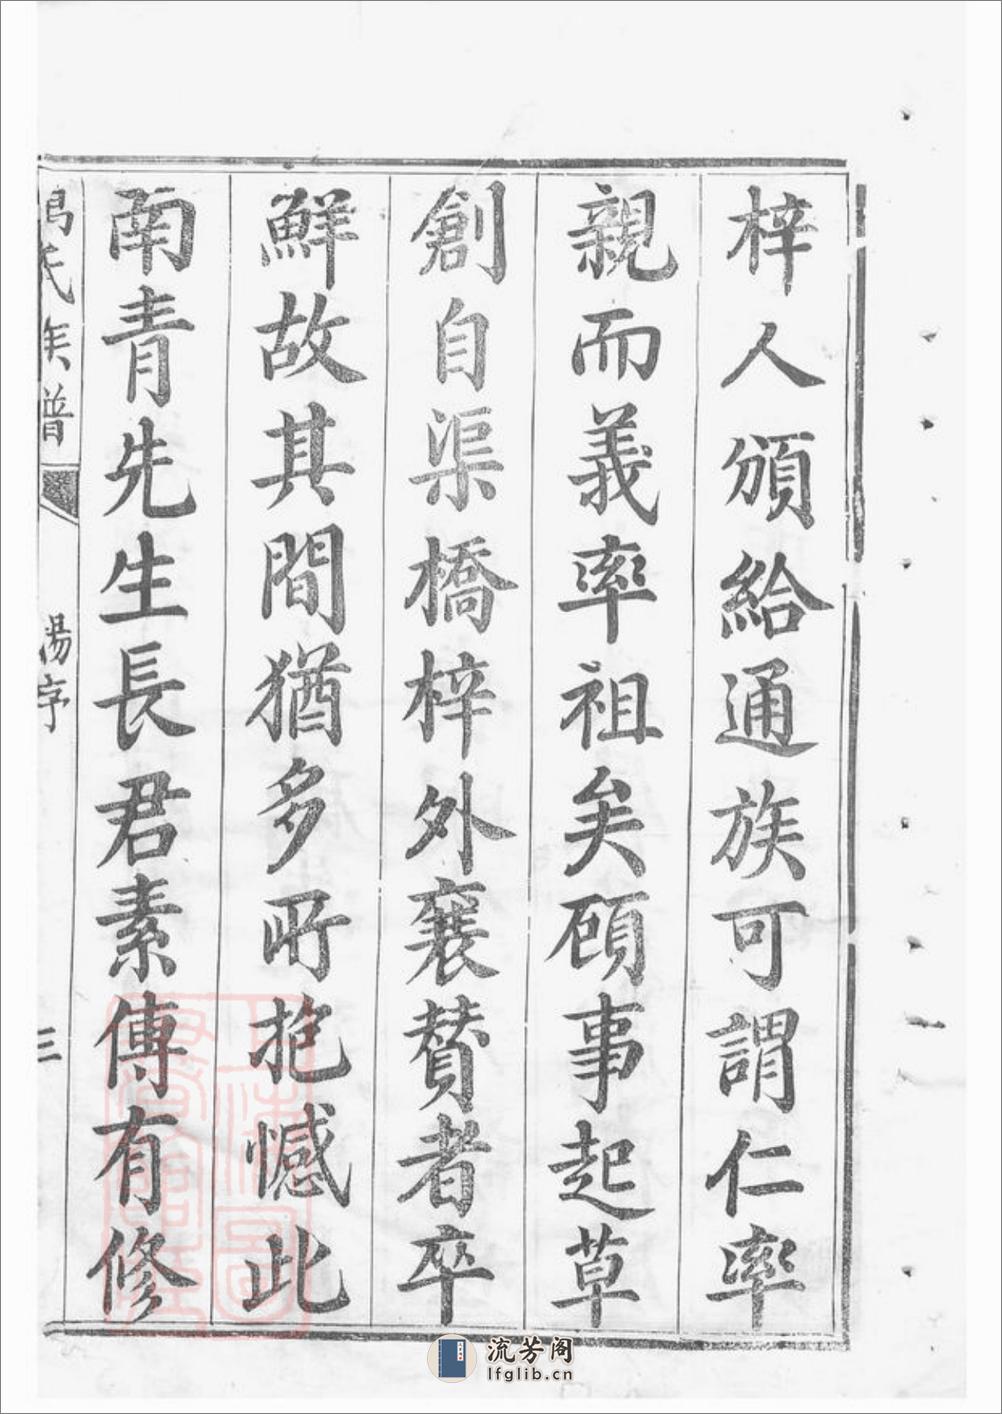 梓人頒給通族可謂仁率
親而義率祖矣顧事起草
創自渠橋梓外襄賛者卒
鮮故其間猶多所抱憾此
南青先生長君素傳有修
氏族譜
湯序
三
流芳阁
lfglib.cn